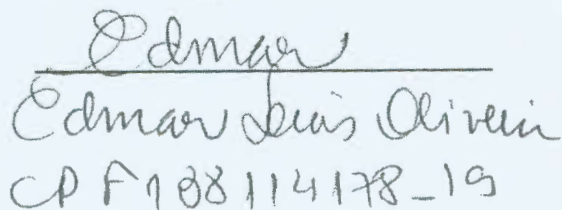 Edmar
Edmar Luis Oliveira
CPF 188114178-19